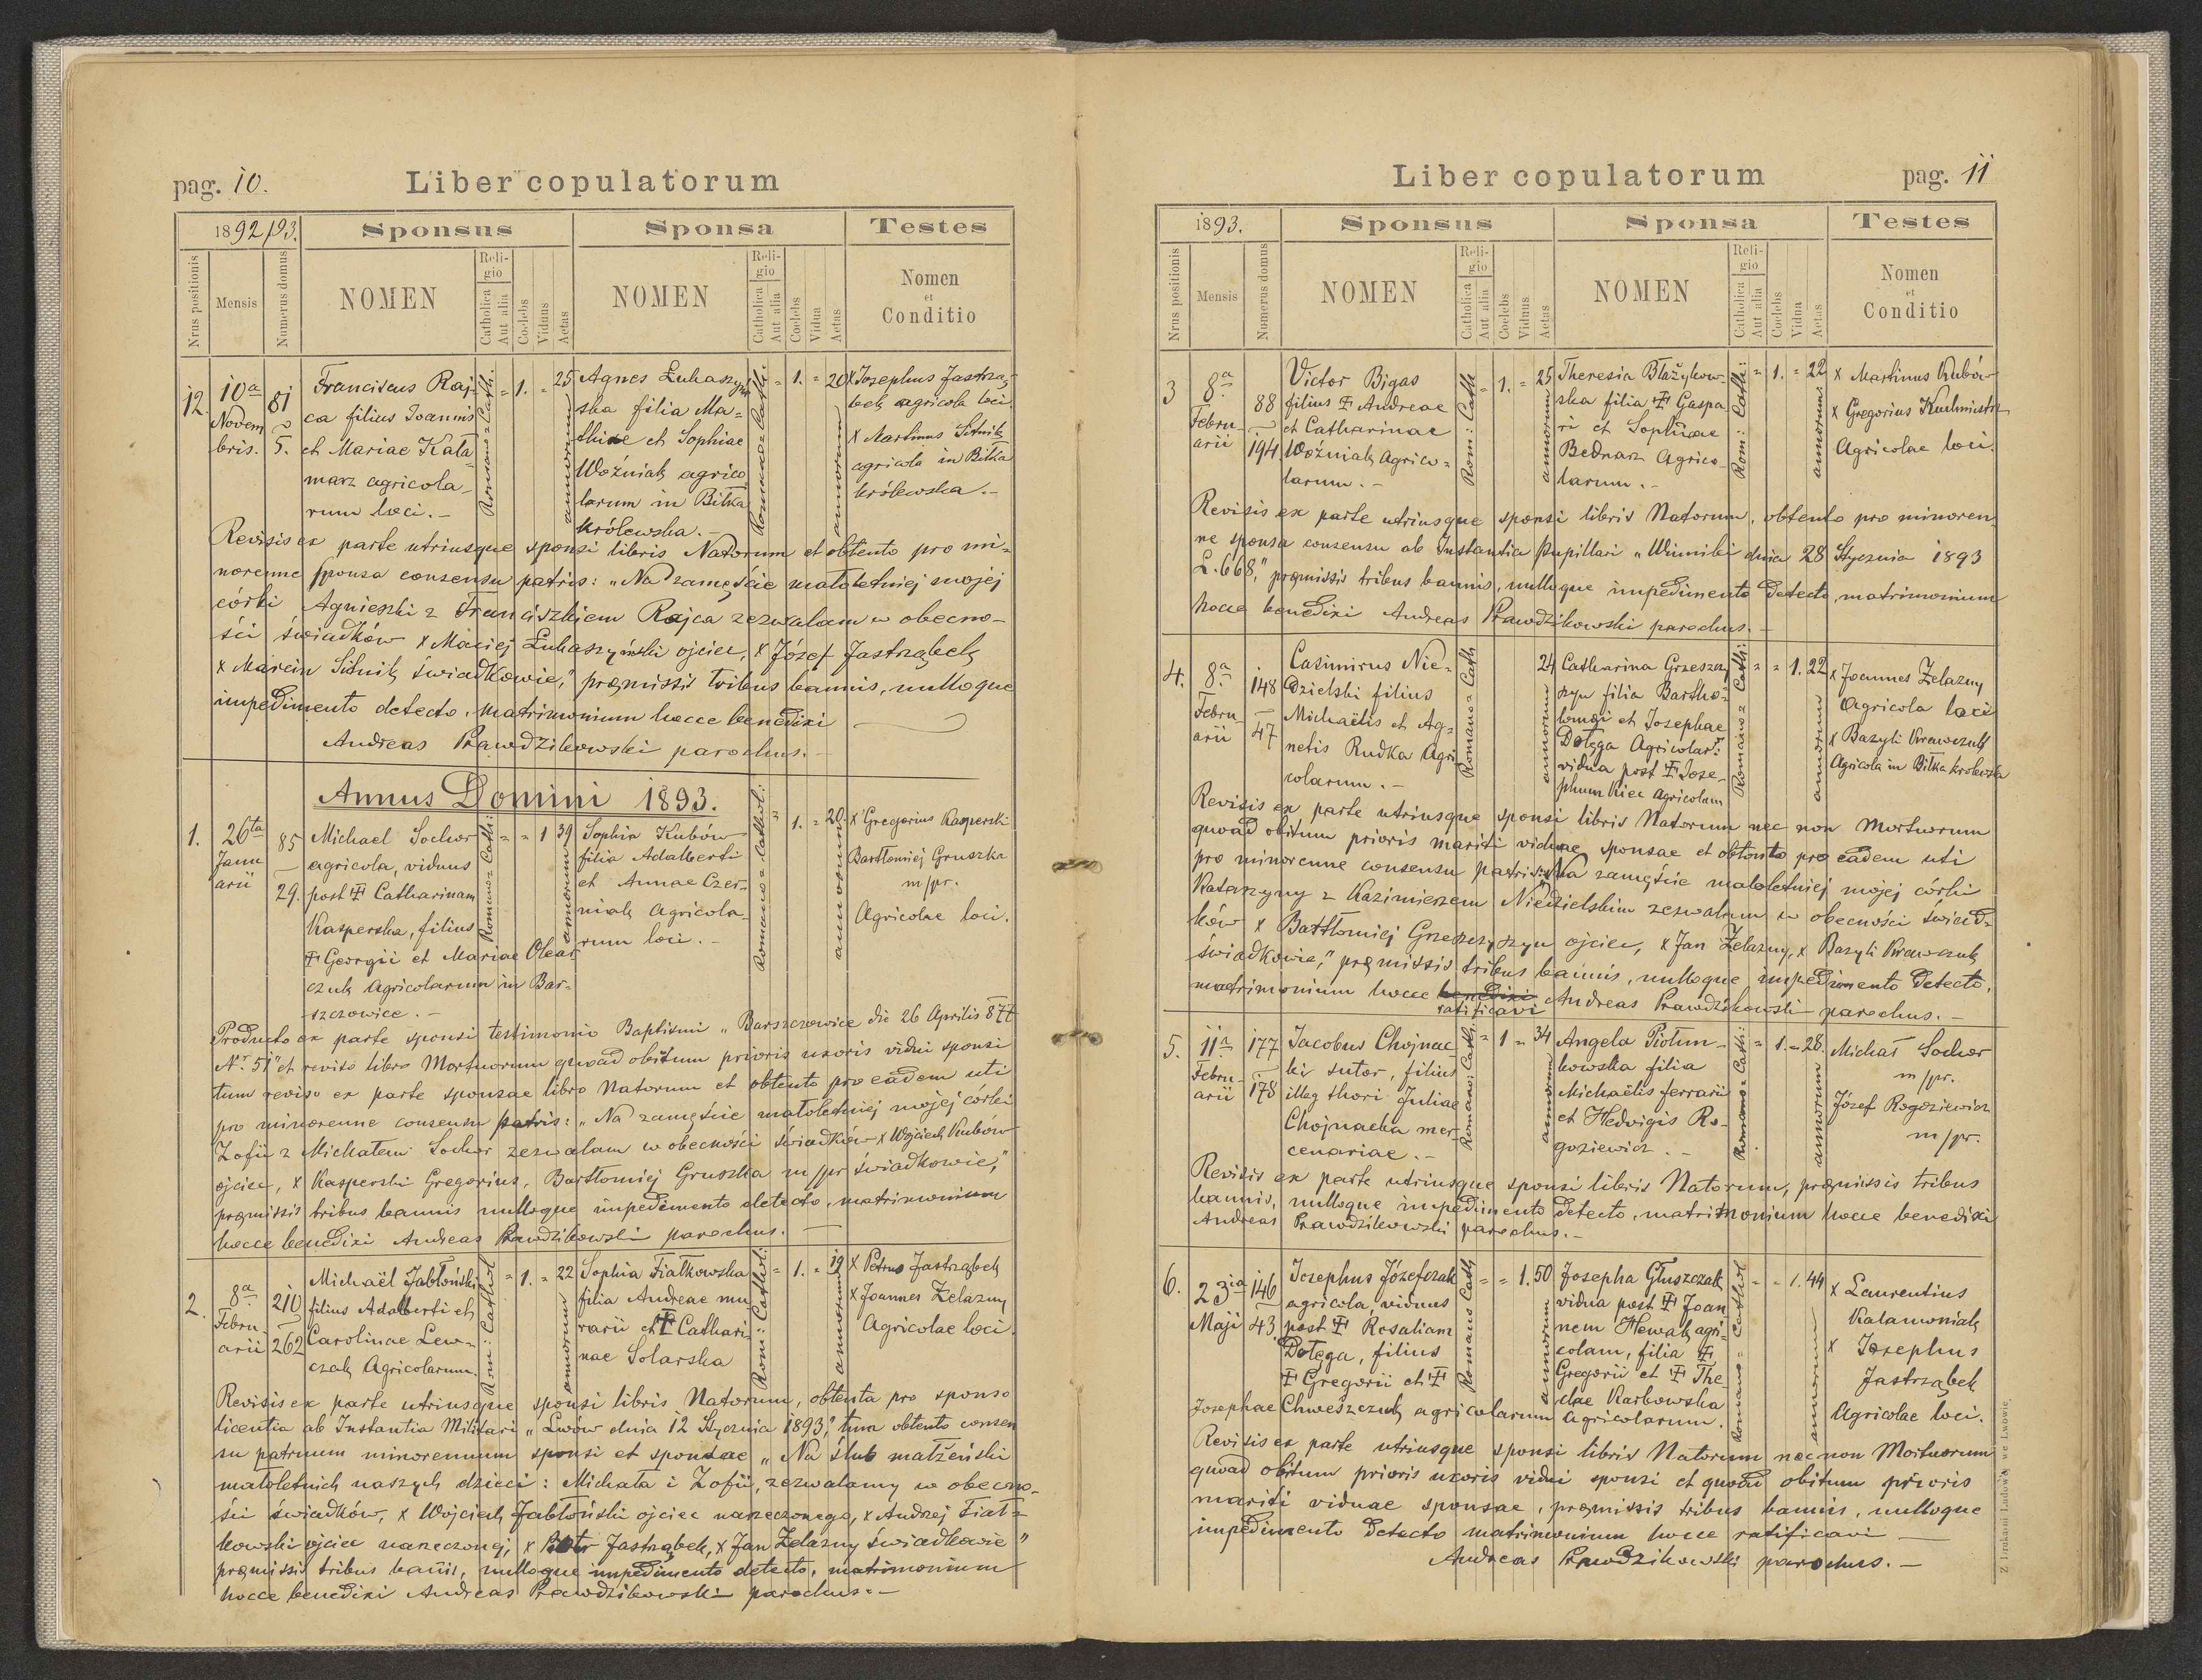 pag. 10.
Liber copulatorum
1892/93.
Sponsus
Sponsa
Testes
Nrus positionis
Mensis
Numerus domus
NOMEN
Religio
Catholica
Aut alia
Coelebs
Viduus
Aetas
NOMEN
Religio
Catholica
Aut alia
Coelebs
Vidua
Aetas
Nomen
et
Conditio
12.
10a
Novem
bris.
81
5.
Franciscus Raj-
ca filius Joannis
et Mariae Kala-
marz agricola-
rum loci.-
Romano=Cath:
= 1. = 25
annorum
Agnes Łukaszyń
ska filia Ma=
thiae et Sophiae
Woźniak agrico
larum in Biłka
królewska.-
Romano=Cath:
= 1. = 20
annorum
x Josephus Jastrzą-
bek agricola loci.
x Martinus Sitnik
agricola in Biłka
królewska.-
Revisis ex parte utriusque sponsi libris Natorum et obtento pro mi=
norenne sponsa consensu patris: „Na zamęście małoletniej mojej
córki Agnieszki z Franciszkiem Rajca zezwalam w obecno-
ści świadków x Maciej Łukaszyński ojciec, x Józef Jastrząbek
x Marcin Sitnik świadkowie," præmissis tribus bannis, nulloque
impedimento detecto, matrimonium hocce benedixi
Andreas Prawdzikowski parochus.-
Annus Domini 1893.
1.
26ta
Janu
arii
85
29.
Michael Sochor
agricola, viduus
post Ŧ Catharinam
Kasperska, filius
Ŧ Georgii et Mariae Olear
czuk Agricolarum in Bar=
szczowice.-
Romano=Cath:
= = 1 39
annorum
Sophia Kubów
filia Adalberti
et Annae Czer-
niak Agricola-
rum loci.-
Romano=Cathol:
" 1. = 20.
annorum
x Gregorius Kasperski
Bartłomiej Gruszka
m/pr.
Agricolae loci.
Producto ex parte sponsi testimonio Baptismi „Barszczowice die 26 Aprilis 877
Nr. 51" et reviso libro Mortuorum quoad obitum prioris uxoris vidui sponsi
tum reviso ex parte sponsae libro Natorum et obtento pro eadem uti
pro minorenne consensu patris: „Na zamęście małoletniej mojej córki
Zofii z Michałem Sochor zezwalam w obecności świadków x Wojciech Kubów
ojciec, x Kasperski Gregorius, Bartłomiej Gruszka m/pr świadkowie,"
præmissis tribus bannis nulloque impedimento detecto, matrimonium
hocce benedixi Andreas Prawdzikowski parochus.-
2.
8a
Febru
arii
210
262
Michaël Jabłoński
filius Adalberti et
Carolinae Lew=
czak Agricolarum.
Rom: Cathol
= 1. = 22
annorum
Sophia Fiałkowska
filia Andreae mu
rarii et Ŧ Cathari
nae Solarska
Rom: Cathol:
= 1. = 19
annorum
x Petrus Jastrząbek
x Joannes Żelazny
Agricolae loci.
Revisis ex parte utriusque sponsi libris Natorum, obtenta pro sponso
licentia ab Instantia Militari „Lwów dnia 12 Stycznia 1893," tum obtento consen
su patruum minorennum sponsi et sponsae „Na ślub małżeński
małoletnich naszych dzieci: Michała i Zofii, zezwalamy w obecno-
ści świadków, x Wojciech Jabłoński ojciec narzeczonego, x Andrzej Fiał=
kowski ojciec narzeczonej, x Piotr Jastrząbek, x Jan Żelazny świadkowie"
præmissis tribus bañis, nulloque impedimento detecto, matrimonium
hocce benedixi Andreas Prawdzikowski parochus.-
Liber copulatorum
pag. 11
1893.
Sponsus
Sponsa
Testes
Nrus positionis
Mensis
Numerus domus
NOMEN
Religio
Catholica
Aut alia
Coelebs
Viduus
Aetas
NOMEN
Religio
Catholica
Aut alia
Coelebs
Vidua
Aetas
Nomen
et
Conditio
3
8a
Febru-
arii
88
194.
Victor Bigas
filius Ŧ Andreae
et Catharinae
Woźniak Agrico=
larum.-
Rom: Cath
= 1. = 25
annorum
Theresia Błażykow-
ska filia Ŧ Gaspa
ri et Sophiae
Bednarz Agrico-
larum.-
Rom: Cath:
= 1. = 22
annorum
x Martinus Kubów
x Gregorius Kuchmistrz
Agricolae loci.
Revisis ex parte utriusque sponsi libris Natorum, obtento pro minoren-
ne sponsa consensu ab Instantia Pupillari „Winniki dnia 28 Stycznia 1893
L. 668," præmissis tribus bannis, nulloque impedimento detecto, matrimonium
hocce benedixi Andreas Prawdzikowski parochus.-
4.
8a
Febru-
arii
148
47
Casimirus Nie=
dzielski filius
Michaëlis et Ag=
netis Rudka Agri
colarum.-
Romano=Cath
24
annorum
Catharina Grzeszczy
szyn filia Bartho=
lomæi et Josephae
Dołęga Agricolar:
vidua post Ŧ Jose-
phum Kiec Agricolam
Romano=Cath:
= = 1. 22
annorum
x Joannes Żelazny
Agricola loci
x Bazyli Krawczuk
Agricola in Biłka krolewska
Revisis ex parte utriusque sponsi libris Natorum nec non Mortuorum
quoad obitum prioris mariti viduae sponsae et obtento pro eadem uti
pro minorenne consensu patris: „Na zamęście małoletniej mojej córki
Katarzyny z Kazimierzem Niedzielskim zezwalam w obecności świad=
ków x Bartłomiej Grzeszczyszyn ojciec, x Jan Żelazny, x Bazyli Krawczuk
świadkowie," præmissis tribus bannis, nulloque impedimento detecto,
matrimonium hocce benedixi ratificavi Andreas Prawdzikowski parochus.-
5.
11a
Febru-
arii
177
178
Jacobus Chojnac-
ki sutor, filius
illeg thori Juliae
Chojnacka mer-
cenariae.-
Romano: Cath:
= 1 = 34
annorum
Angela Piotrow-
kowska filia
Michaëlis ferrarii
et Hedvigis Ro-
goziewicz.-
Romano=Cath:
= 1. = 28.
annorum
Michał Sochor
m/pr.
Józef Rogoziewicz
m/pr.
Revisis ex parte utriusque sponsi libris Natorum, præmissis tribus
bannis, nulloque impedimento detecto, matrimonium hocce benedixi
Andreas Prawdzikowski parochus.-
6.
23ia
Maji
146
43.
Josephus Józefczak
agricola, viduus
post Ŧ Rosaliam
Dołęga, filius
Ŧ Gregorii et Ŧ
Josephae Chweszczuk agricolarum
Romano Cath
= = 1. 50
annorum
Josepha Głuszczak
vidua post Ŧ Joan
nem Hewak agri-
colam, filia Ŧ
Gregorii et Ŧ The-
clae Karbowska
agricolarum.
Romano=Cathol
= = 1. 44
annorum
x Laurentius
Kalamoniak
x Josephus
Jastrząbek
Agricolae loci.
Revisis ex parte utriusque sponsi libris Natorum nec non Mortuorum
quoad obitum prioris uxoris vidui sponsi et quoad obitum prioris
mariti viduae sponsae, præmissis tribus bannis, nulloque
impedimento detecto matrimonium hocce ratificavi
Andreas Prawdzikowski parochus.-
Z Drukarni Ludowej we Lwowie